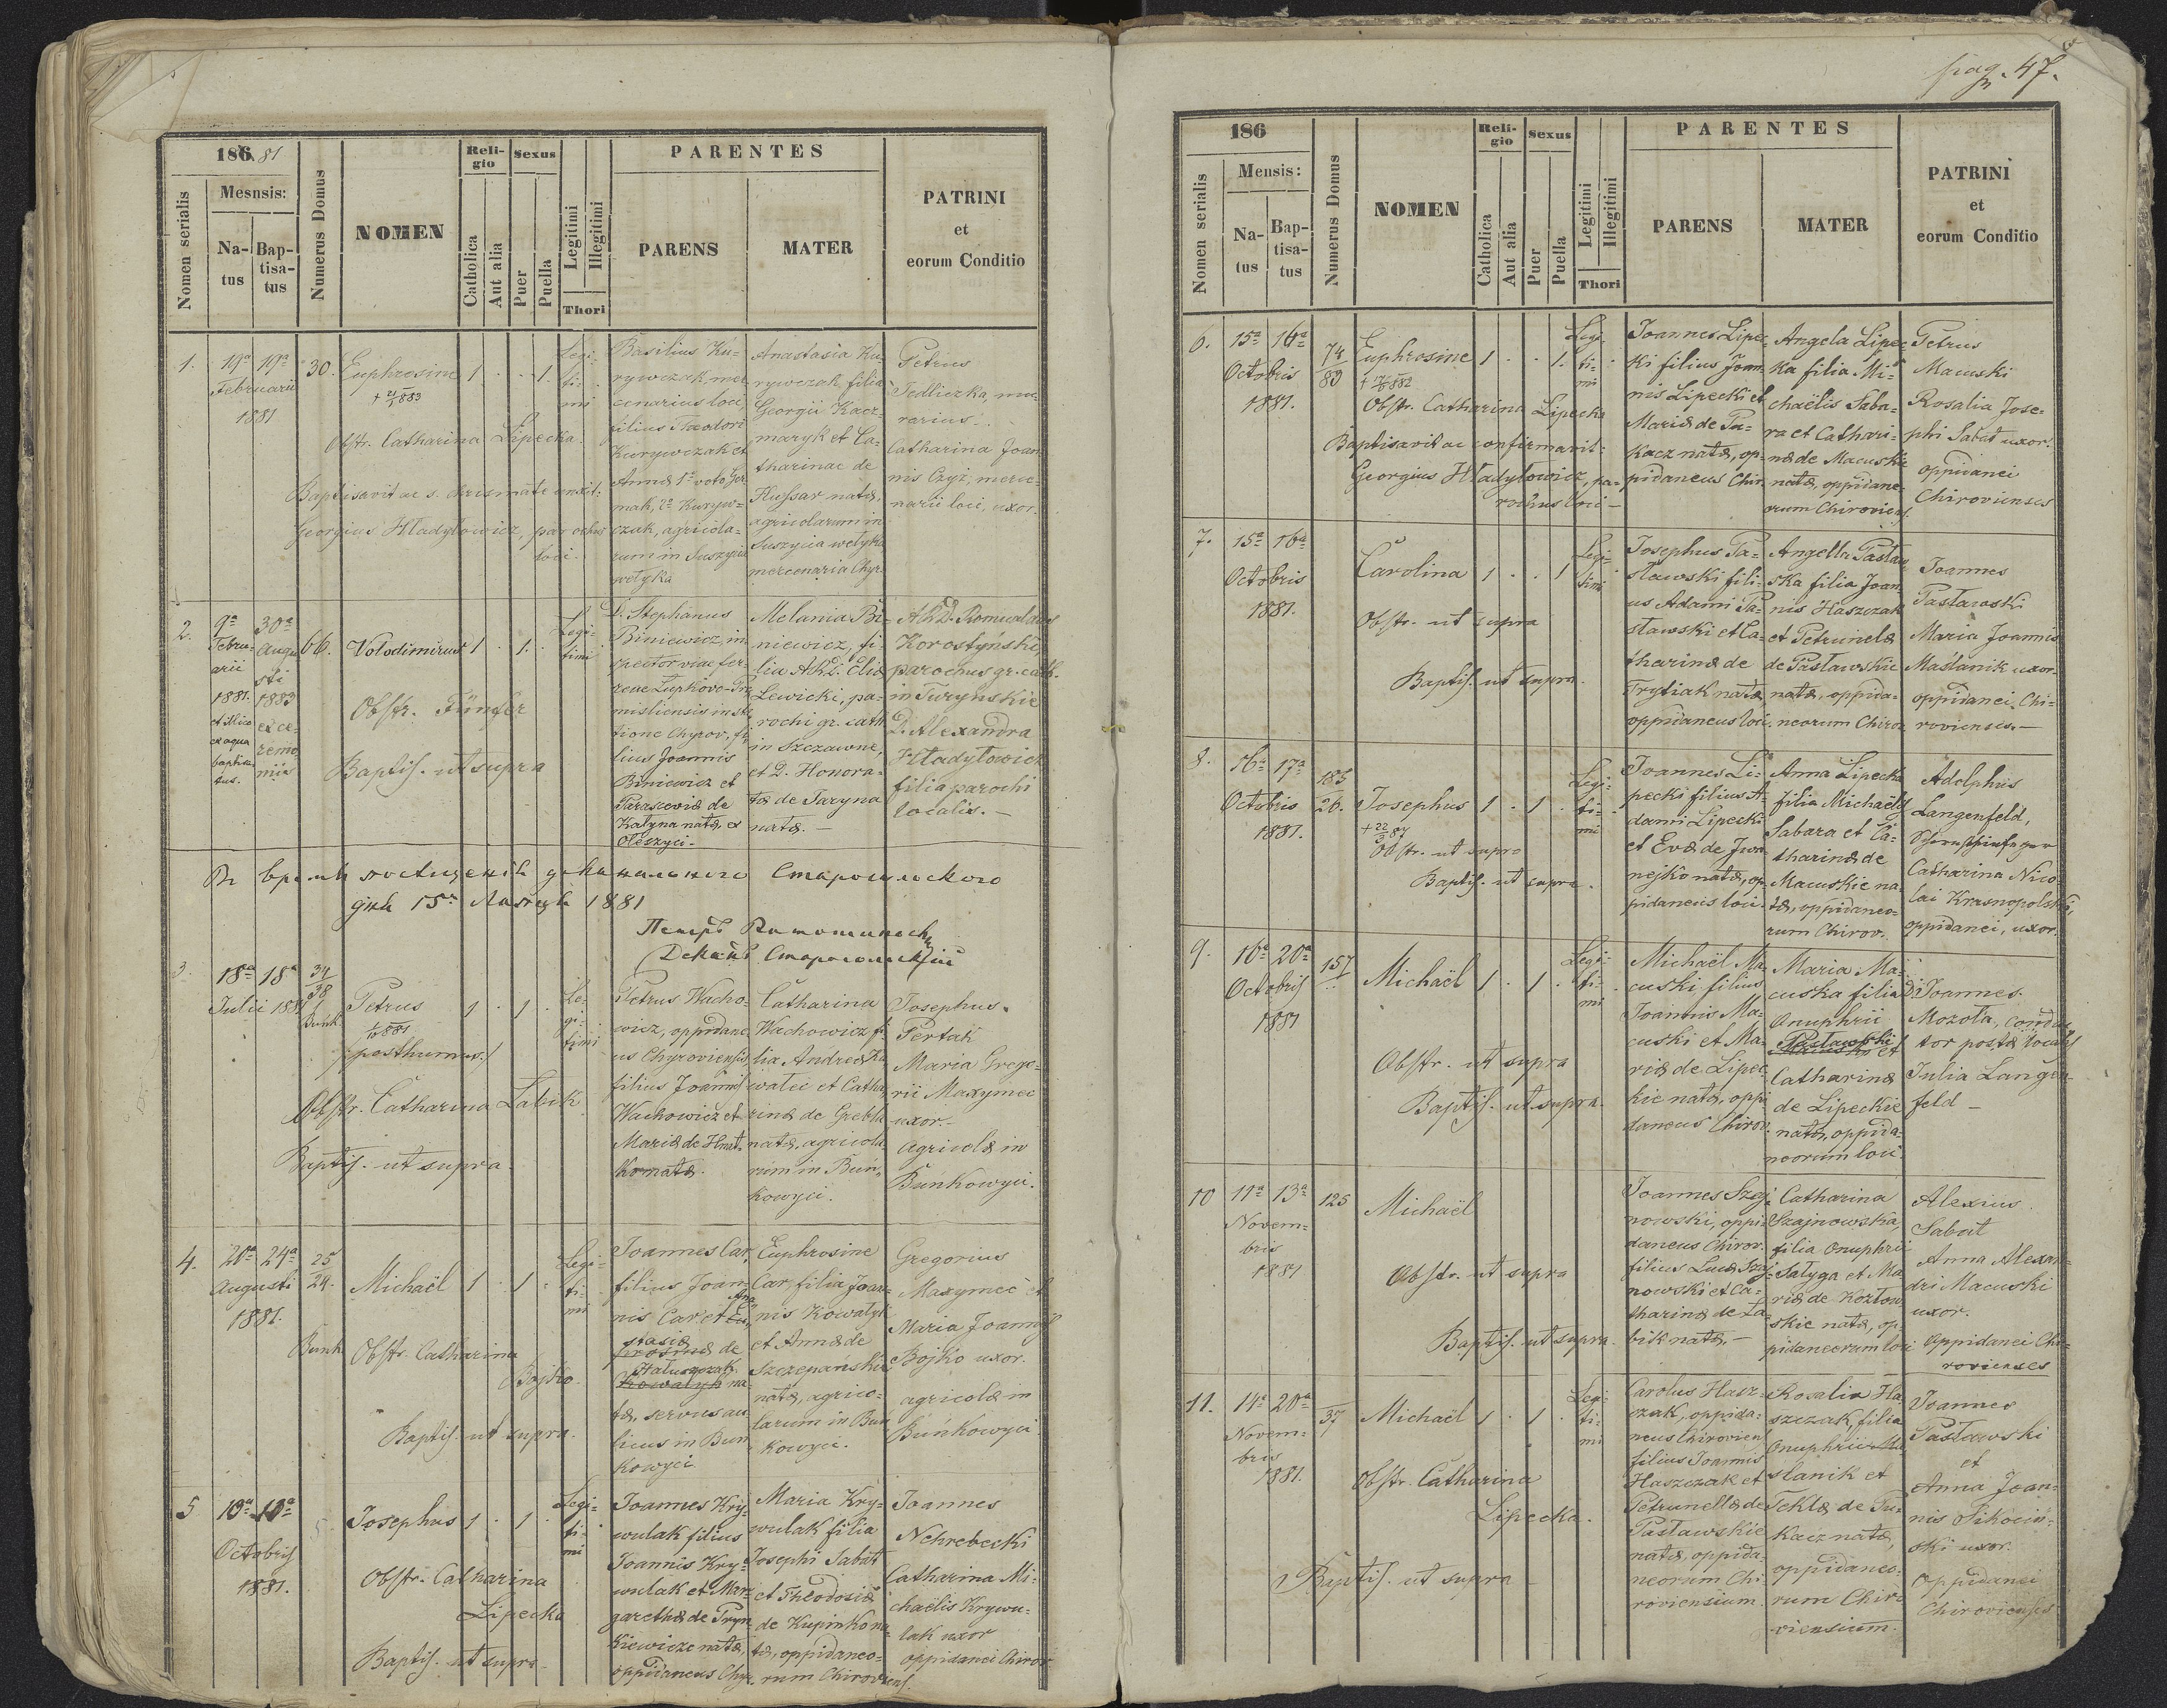 pag. 47.
186 81
Mesnsis:
Nomen serialis
Natus
Baptisatus
Numerus Domus
NOMEN
Religio
Catholica
Aut alia
Sexus
Puer
Puella
Legitimi
Illegitimi
Thori
PARENTES
PARENS
MATER
PATRINI
et
eorum Conditio
1.
19ª 19ª
Februarii
1881
30.
Euphrosine 1 . . 1.
Legi-
ti-
mi
Obstr. Catharina Lipecka.
Baptisavit ac s. chrismate unxit:
Georgius Hładyłowicz, parochus
loci.
Basilius Ku-
rywczak, mer
cenarius loci,
filius Theodori
Kurywczak et
Annæ 1º voto
mak, 2º Kuryw-
czak, agricola-
rum in Suszyca
wełyka
Anastasia Ku-
rywczak, filia
Georgii Kacz-
maryk et Ca-
tharinae de
Kussar natæ,
agricolarum in
Suszycia wełyka
mercenaria Chyr.
Petrus
Jedliczka, mu-
rarius.
Catharina Joan-
nis Czyż, merce-
narii loci, uxor.
2.
9ª
Febru-
arii
1881.
30ª
Augu
sti
1883
ex ce-
remo-
niis
66.
Volodimirus 1 . 1. .
Legi-
timi
Obstr. Fünfer
Baptis. ut supra
D. Stephanus
Biniewicz, in-
spector viae fer-
reae Łupkovo-Pre
misliensis in sta-
tione Chyrov, fi-
lius Joannis
Biniewicz et
Parasceviæ de
Katyna natæ, ex
Oleszyci.
Melania Bi-
niewicz, fi-
lia ARD. Eliæ
Lewicki, pa-
rochi gr. cath.
in Szczawne,
et D. Honora-
tæ de Taryna
natæ. —
ARD. Romualdus
Korostyński,
parochus gr. cath.
in Turyńskie
D. Alexandra
Hładyłowicz
filia parochi
localis. —
дня 15º 1881
3.
18ª 18ª
Julii 1881
34
38
Buńk.
Petrus 1 . 1 .
/posthumus/
Le-
gi-
timi
Obstr. Catharina Łabik
Baptis. ut supra.
Petrus Wacho-
wicz, oppidane-
us Chyroviensis,
filius Joannis
Wachowicz et
Mariæ de Hnat-
ko natæ.
Catharina
Wachowicz fi-
lia Andreæ Ko
walci et Catha-
rinæ de Grebla
natæ, agricola-
rum in Buń-
kowyci.
Josephus
Pertak
Maria Grego-
rii Maxymec
uxor.
agricolæ in
Buńkowyci.
4.
20ª 24ª
Augusti
1881.
25
24.
Buńk.
Michaël 1 . 1 .
Legi-
ti-
mi
Obstr. Catharina
Bojko.
Baptis. ut supra.
Joannes Car,
filius Joan-
nis Car et Ana
stasiæ de
Hałuszczak na-
tæ, servus au-
licus in Buń
kowyci
Euphrosine
Car filia Joan-
nis Kowałyk
et Annæ de
Szczepański
natæ, agrico-
larum in Buń
kowyci.
Gregorius
Maxymec et
Maria Joannis
Bojko uxor.
agricolæ in
Buńkowyci
5
10ª 10ª
Octobris
1881.
Josephus 1 . 1 .
Legi-
ti-
mi
Obstr. Catharina
Lipecka
Baptis. ut supra.
Joannes Kry-
wulak filius
Joannis Kry-
wulak et Mar-
garethæ de Pryn-
kiewicze natæ,
oppidaneus Chyr.
Maria Kry-
wulak filia
Josephi Sabat
et Theodosiæ
de Kupinko na
tæ, oppidaneo-
rum Chiroviens.
Joannes
Nehrebecki
Catharina Mi-
chaëlis Krywu-
lak uxor
oppidanei Chirov.
186
Mensis:
Nomen serialis
Natus
Baptisatus
Numerus Domus
NOMEN
Religio
Catholica
Aut alia
Sexus
Puer
Puella
Legitimi
Illegitimi
Thori
PARENTES
PARENS
MATER
PATRINI
et
eorum Conditio
6.
15ª 16ª
Octobris
1881.
74
83
Euphrosine 1 . . 1.
Legi-
ti-
mi
Obstr. Catharina Lipecka
Baptisavit ac confirmavit:
Georgius Hładyłowicz, pa-
rochus loci —
Joannes Lipec-
ki filius Joan-
nis Lipecki et
Mariæ de Pu-
kacz natæ, op-
pidaneus Chir.
Angela Lipec
ka filia Mi-
chaëlis Saba-
ra et Cathari-
næ de Macuskie
natæ, oppidane-
orum Chiroviens.
Petrus
Macuski
Rosalia Jose-
phi Sabat uxor.
oppidanei
Chirovienses
7.
15ª 16ª
Octobris
1881.
Carolina 1 . . 1
Legi-
timi
Obstr. ut supra
Baptis. ut supra.
Josephus Pa-
sławski fili-
us Adami Pa-
sławski et Ca-
tharinæ de
Trytiak natæ
oppidaneus loci.
Angella Pasław
ska filia Joan-
nis Haszczak
et Petrunelæ
de Pasławskie
natæ, oppida-
neorum Chirov.
Joannes
Pasławski
Maria Joannis
Maślanik uxor
oppidanei Chi-
rovienses. —
8.
16ª 17ª
Octobris
1881.
185
26.
Josephus 1 . 1 .
Legi-
ti-
mi
Obstr. ut supra
Baptis. ut supra.
Joannes Li-
pecki filius A-
dami Lipecki
et Evæ de Iwa-
nejko natæ, op-
pidaneus loci.
Anna Lipecka
filia Michaëlis
Sabara et Ca-
tharinæ de
Macuskie na-
tæ, oppidaneo-
rum Chirov.
Adolphus
Langenfeld,
Catharina Nico-
lai Krasnopolski,
oppidanei, uxor.
9.
16ª 20ª
Octobris
1881
157
Michaël 1 . 1 .
Legi-
ti-
mi
Obstr. ut supra
Baptis. ut supra.
Michaël Ma-
cuski filius
Joannis Ma-
cuski et Ma-
riæ de Lipec-
kie natæ, oppi-
daneus Chirov.
Maria Ma-
cuska filia
Onuphrii
Pasławski et
Catharinæ
de Lipeckie
natæ, oppida-
neorum loci
D. Joannes
Mozoła, conduc
tor postæ localis
Julia Langen-
feld —
10
11ª 13ª
Novem-
bris
1881
125
Michaël
Obstr. ut supra
Baptis. ut supra.
Joannes Szaj-
nowski, oppi-
daneus Chirov.
filius Lucæ Szaj-
nowski et Ca-
tharinæ de Ła-
bik natæ. —
Catharina
Szajnowska
filia Onuphrii
Sałyga et Ma
riæ de Kozłow
skie natæ, op-
pidaneorum loci
Alexius
Sabat
Anna Alexan-
dri Macuski
uxor.
Oppidanei Chi-
rovienses
11.
14ª 20ª
Novem-
bris
1881.
37
Michaël 1 . 1 .
Legi-
ti-
mi
Obstr. Catharina
Lipecka.
Baptis. ut supra
Carolus Hasz-
czak, oppida-
neus Chiroviens
filius Joannis
Haszczak et
Petrunellæ de
Pasławskie
natæ, oppida-
neorum Chi-
roviensium.
Rosalia Ha-
szczak, filia
Onuphrii Ma
slanik et
Teklæ de Pu-
kacz natæ,
oppidaneo-
rum Chiro
viensium.
Joannes
Pasławski
et
Anna Joan-
nis Sikociń-
ski uxor.
Oppidanei
Chirovienses